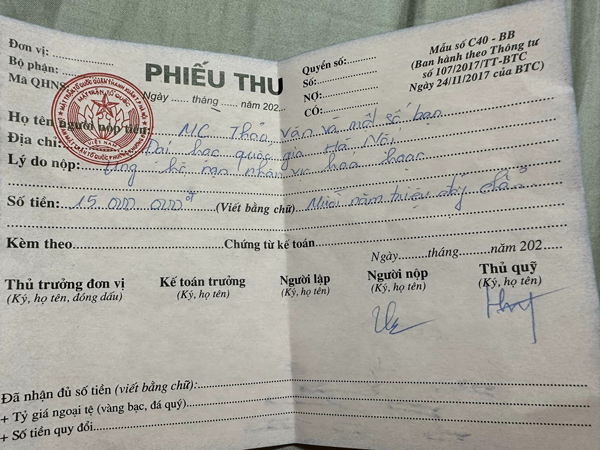 Đơn vị:
Bộ phận:
Mã QHNS
PHIẾU THU
Ngày ..... tháng ..... năm 202...
Quyển số:
Số:
NỢ:
CÓ:
Mẫu số C40 - BB
(Ban hành theo Thông tư
số 107/2017/TT-BTC
Ngày 24/11/2017 của BTC)
MẶT TRẬN TỔ QUỐC
VIỆT NAM
Họ tên người nộp tiền: MC Thảo Vân và một số bạn
Địa chỉ: Đại học quốc gia Hà Nội
Lý do nộp: Ủng hộ nạn nhân vụ hỏa hoạn
Số tiền: 15.000.000đ (Viết bằng chữ) Mười năm triệu đồng chẵn
Kèm theo Chứng từ kế toán.
Ngày.......tháng.......năm 202...
Thủ trưởng đơn vị Kế toán trưởng Người lập Người nộp Thủ quỹ
(Ký, họ tên, đóng dấu) (Ký, họ tên) (Ký, họ tên) (Ký, họ tên) (Ký, họ tên)
Đã nhận đủ số tiền (viết bằng chữ):
+ Tỷ giá ngoại tệ (vàng bạc, đá quý)
+ Số tiền quy đổi